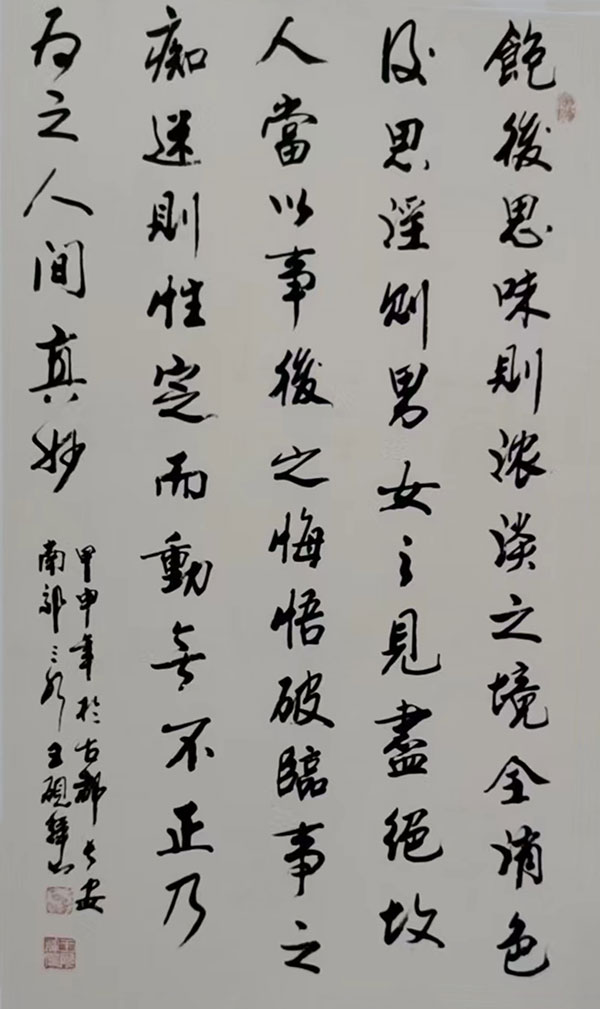 飽後思味則浓淡之境全消色
后思淫則男女之見盡絕故
人當以事後之悔悟破臨事之
痴迷則性定而動無不正乃
为之人间真妙
甲申年於古都长安
南郊之、王砚